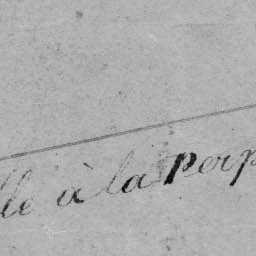 lle à la Perp